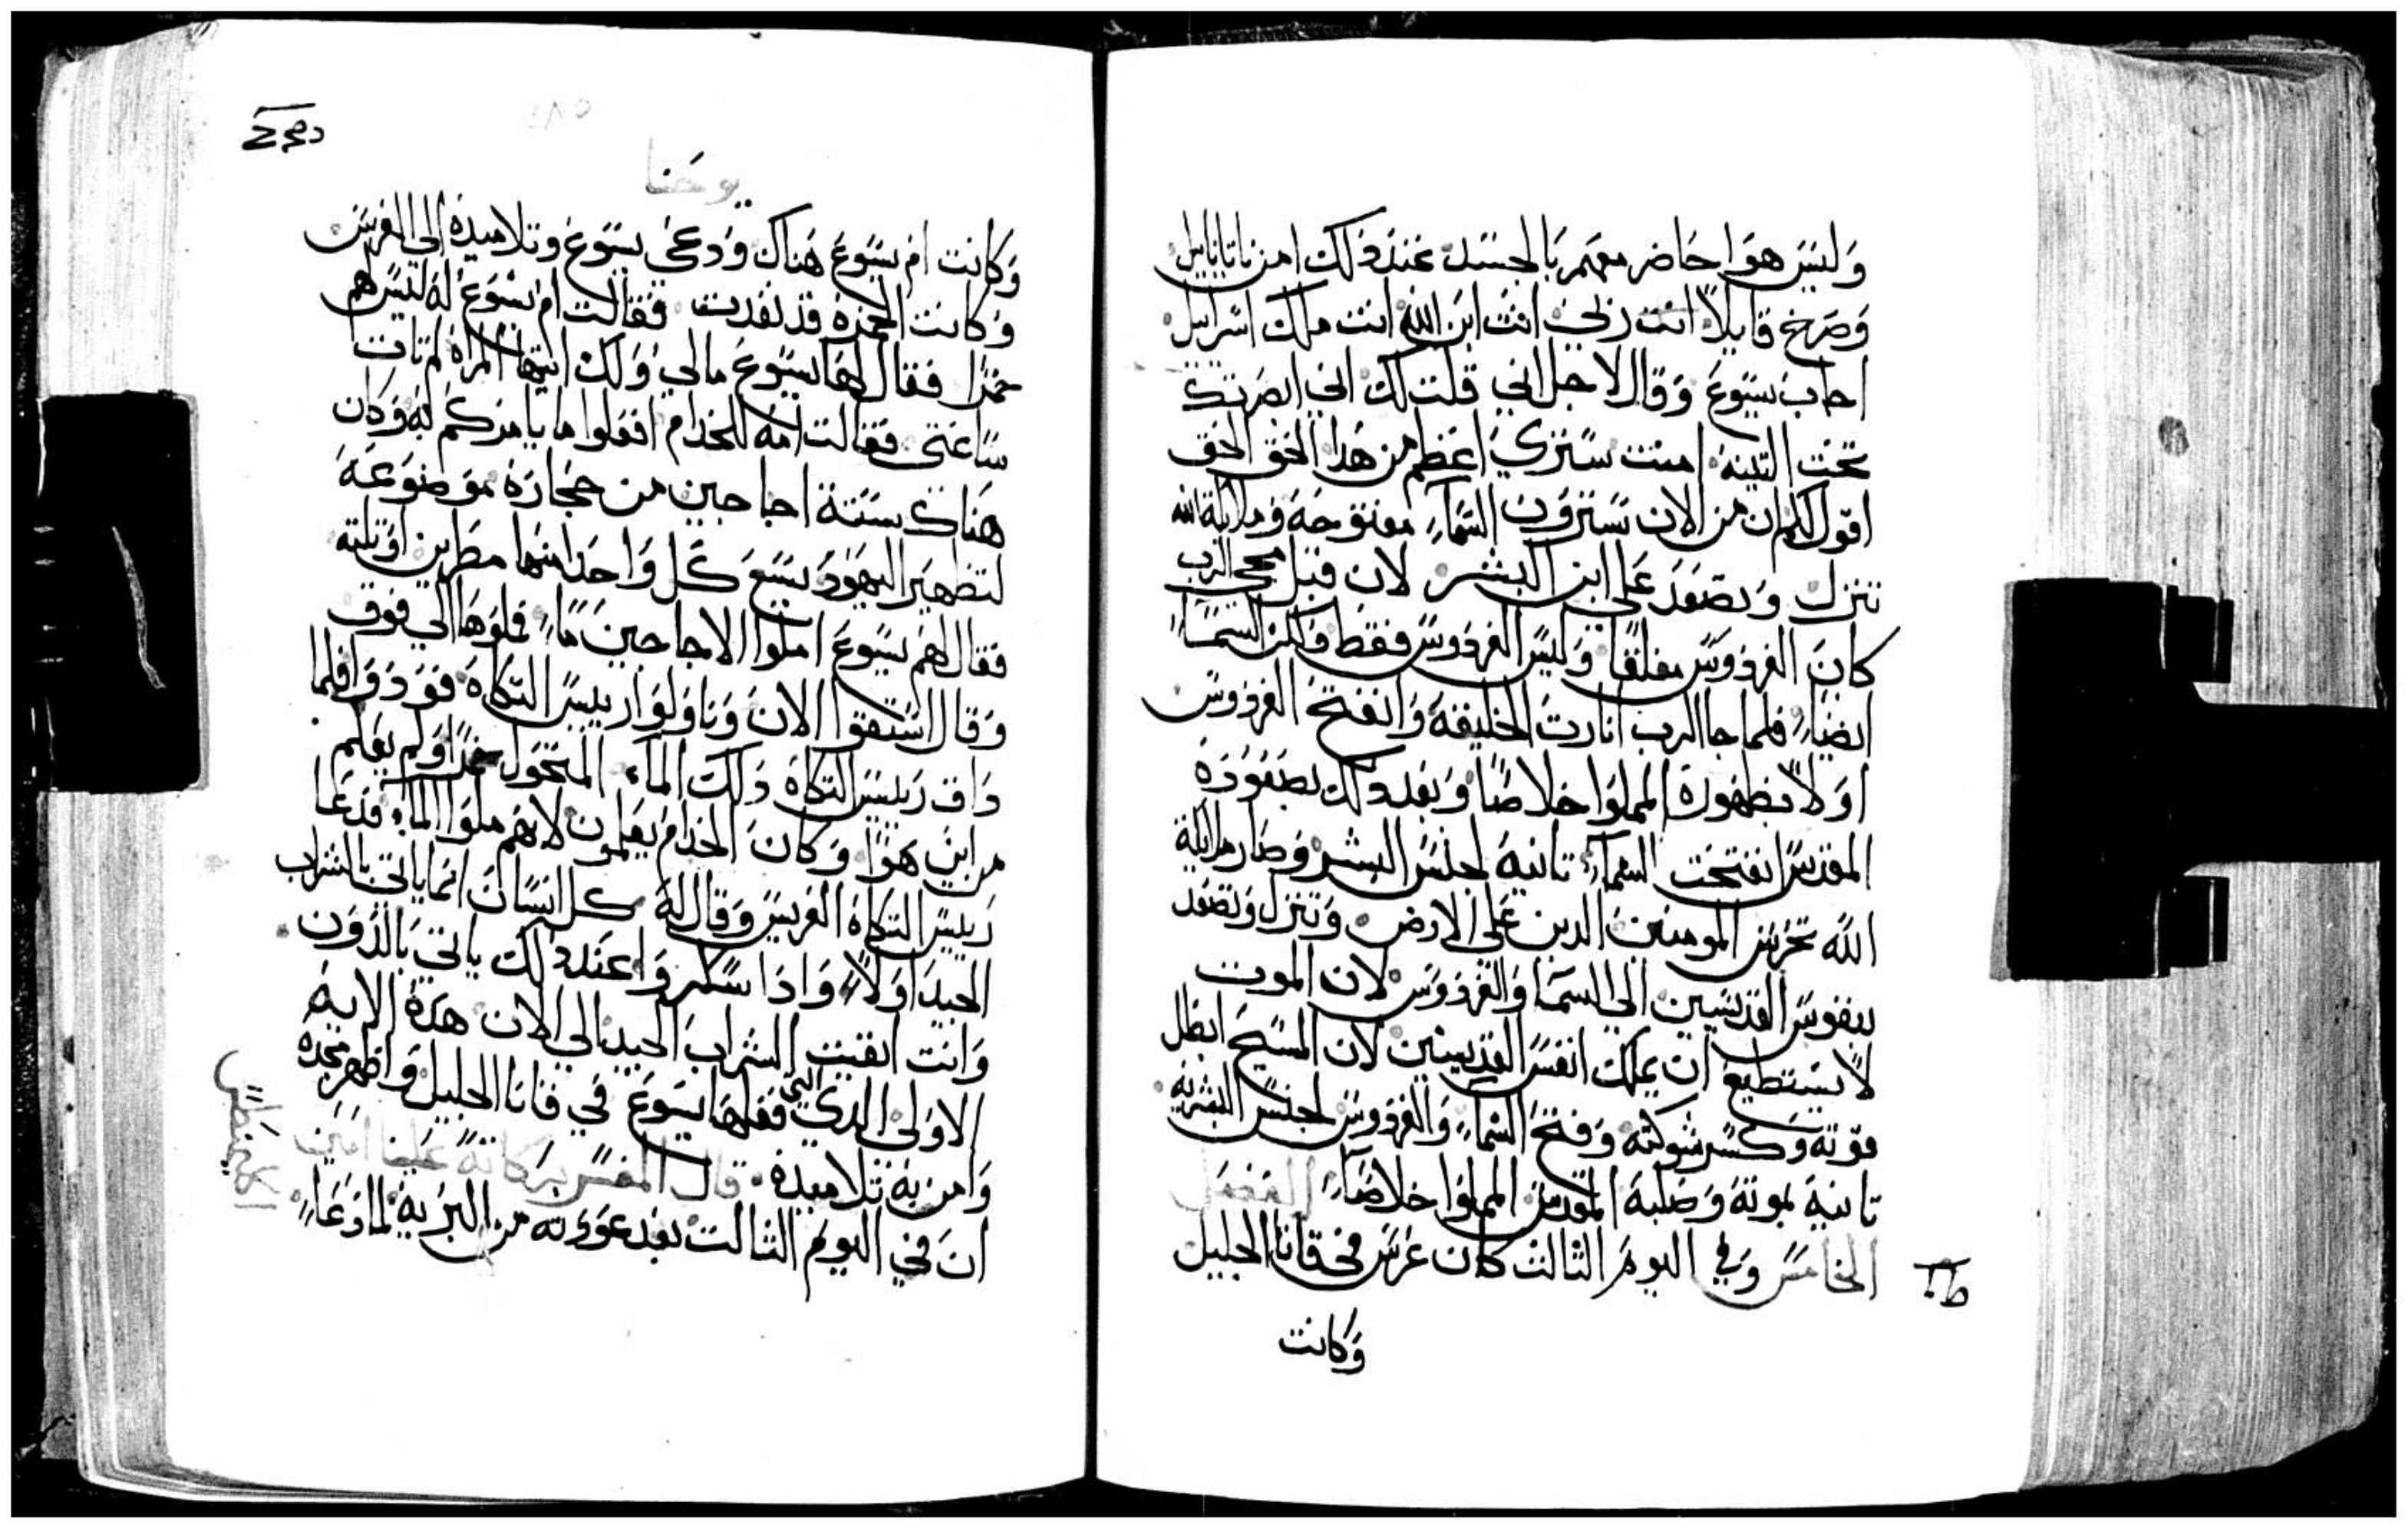 وَليسَ هوَا حَاضر معهم بَالجسَد عندَ دَلك امن ناتاناييل
وَصَرخ قايلاً انت رَبي انت ابن الله انت ملك اسرَاييل
اجاب يسَوع وَقال لاجل اني قلت لك اني ابصرتك
تحت التينه امنت سَترَي اعظم من هَدا الحَق الحَق
اقول لكم ان من الان تسَترَوَن السَمآء مفتوحَه وَملايكة الله
تنزل وَتصَعَد عَلي ابن البشر لان قبل مجي الرب
كانَ الفردَوَس مغلقاً وَليسَ الفردَوسَ فقط وَلكن السَمآء
ايضاً فلما جا الرب انارت الخليقة وَانفتحَ الفردَوسَ
اوَلاً بظهورة المملوَا خلاصَاً وَبعد دلك بصَعَوَدَة
المقدسَ انفتحَت السَمآء تانيةَ لجنسَ البشر وَصَار ملايكة
الله تحرسَ المومنين الدين عَلي الارض وَتنزل وَتصعَد
بنفوسَ القديسَين الي السَما وَالفردَوَسَ لان الموت
لا يسَتطيع ان يملك انفسَ القديسَين لان المسَيحَ ابطل
قوته وَكسَر شوكته وَفتحَ السَماء وَالفردَوسَ لجنسَ البشريه
تانية بموتةَ وَصَلبةَ المقدسَ المملوَا خلاصَاً الفصَل
الخامسَ وَفي اليومَ التالت كان عرسَ في قانا الجليل
وَكانت
يوحَنا
وَكانت ام يسَوعَ هَناك وَدعَي يسَوعَ وتلاميدة الي العرسَ
وَكانت الخمرَة قد نفدت فقالت ام يسَوعَ لةَ ليسَ هم
خمرَا فقال لهَا يسَوعَ مالي وَلك ايتها المراة لم تات
سَاعَتي فقالت امه للخدام افعَلوا ما يامرَكم به وَكان
هَناك سَتة اجاجين من حَجارَة موَضوَعَة
لتطهير اليهَوَد يسَع كل وَاحَد منها مطرين اوَتلته
فقال لهم يسَوعَ املوا الاجاجين مَاء فملوَهَا الي فوق
وَقال اسَتقوا الانَ وَناوَلوَا رييسَ التكاة فوَدوَا فلما
دَاق رَييسَ التكاة دَلك المآء المتحَول خمرَاً وَلم يعَلم
من اين هَوَا وَكانَ الخدام يعَلمون لانهم ملوَا المآء فدَعَا
رَييسَ التكاة العريسَ وَقال لةَ كل انسَانَ انما ياتي بالشراب
الجيد اوَلاً وَادَا سَكروَا عَند دلك ياتي بَالدوَن
وَانت ابقيت الشراب الجيد الي الان هَدة الايه
الاوَلي الدي التي فعَلهَا يسَوعَ في قانا الجليل وَاظهر مجدة
وَامن بة تلاميدة قال المفسَر برَكاتة عَلينا امين
انَ في اليوم التالت بعَد عَوَدته من البرَية لما دَعَا